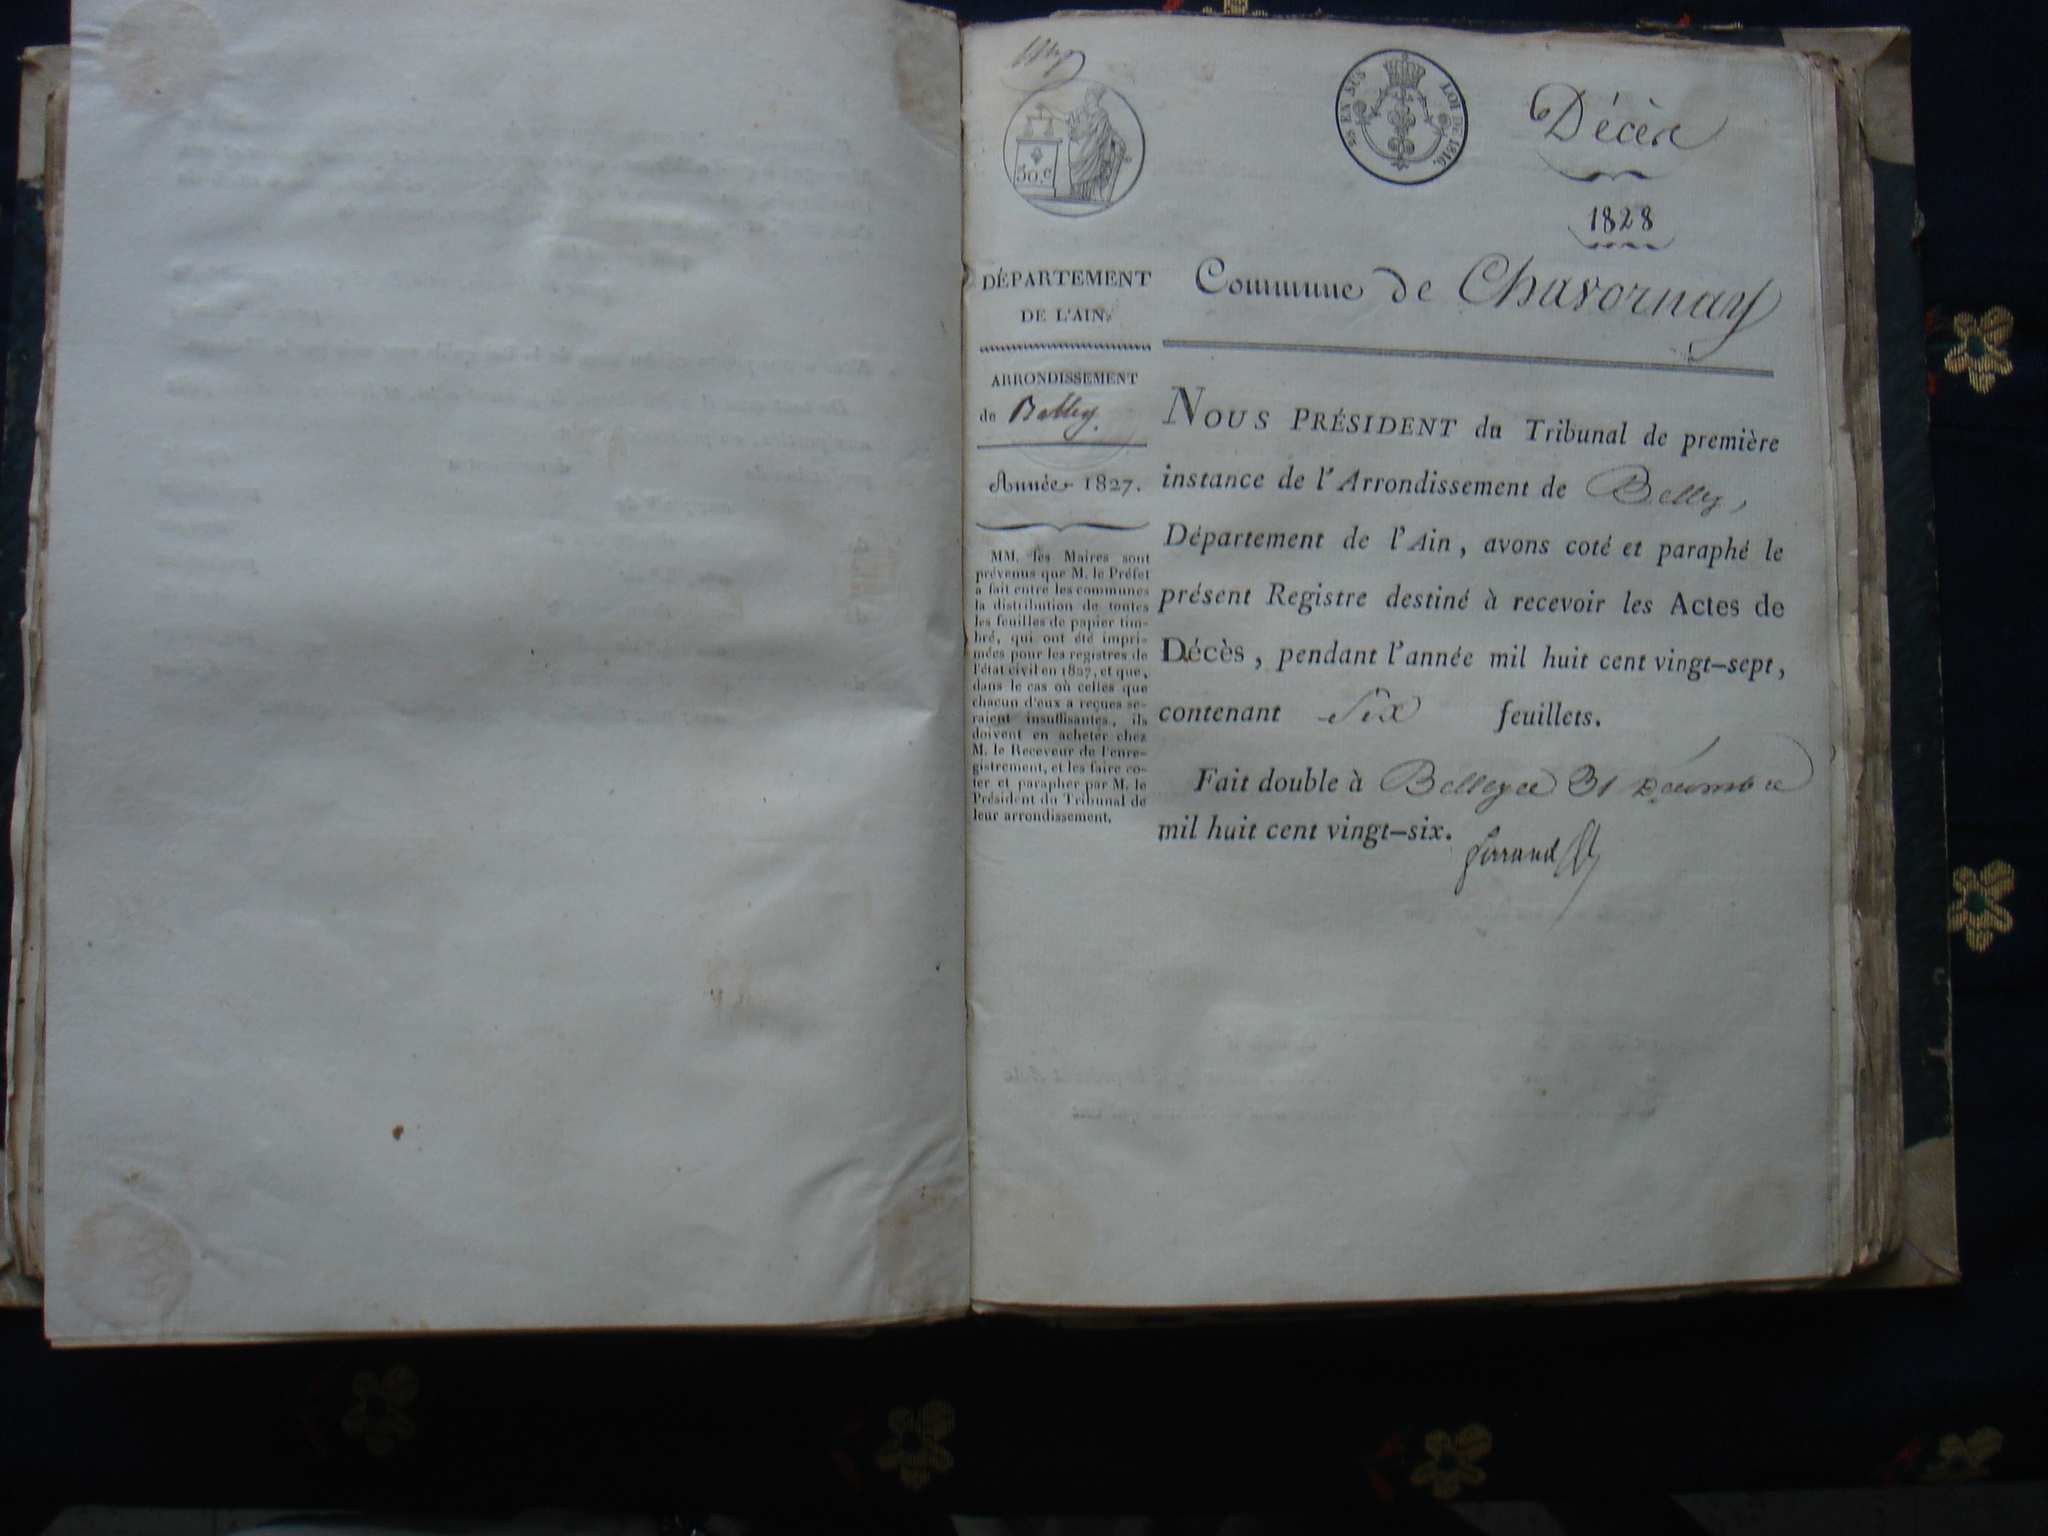 30.c
25 EN SUS LOI DE 1816.
Décès
1828
DÉPARTEMENT
DE L'AIN.
Commune de Chavornay
ARRONDISSEMENT
de Belley.
Année 1827.
MM. les Maires sont
prévenus que M. le Préfet
a fait entre les communes
la distribution de toutes
les feuilles de papier tim-
bré, qui ont été impri-
mées pour les registres de
l'état civil en 1827, et que,
dans le cas où celles que
chacun d'eux a reçues se-
raient insuffisantes, ils
doivent en acheter chez
M. le Receveur de l'enre-
gistrement, et les faire co-
ter et parapher par M. le
Président du Tribunal de
leur arrondissement.
NOUS PRÉSIDENT du Tribunal de première
instance de l'Arrondissement de Belley,
Département de l'Ain, avons coté et paraphé le
présent Registre destiné à recevoir les Actes de
Décès, pendant l'année mil huit cent vingt-sept,
contenant Six feuillets.
Fait double à Belley ce 31 Décembre
mil huit cent vingt-six.